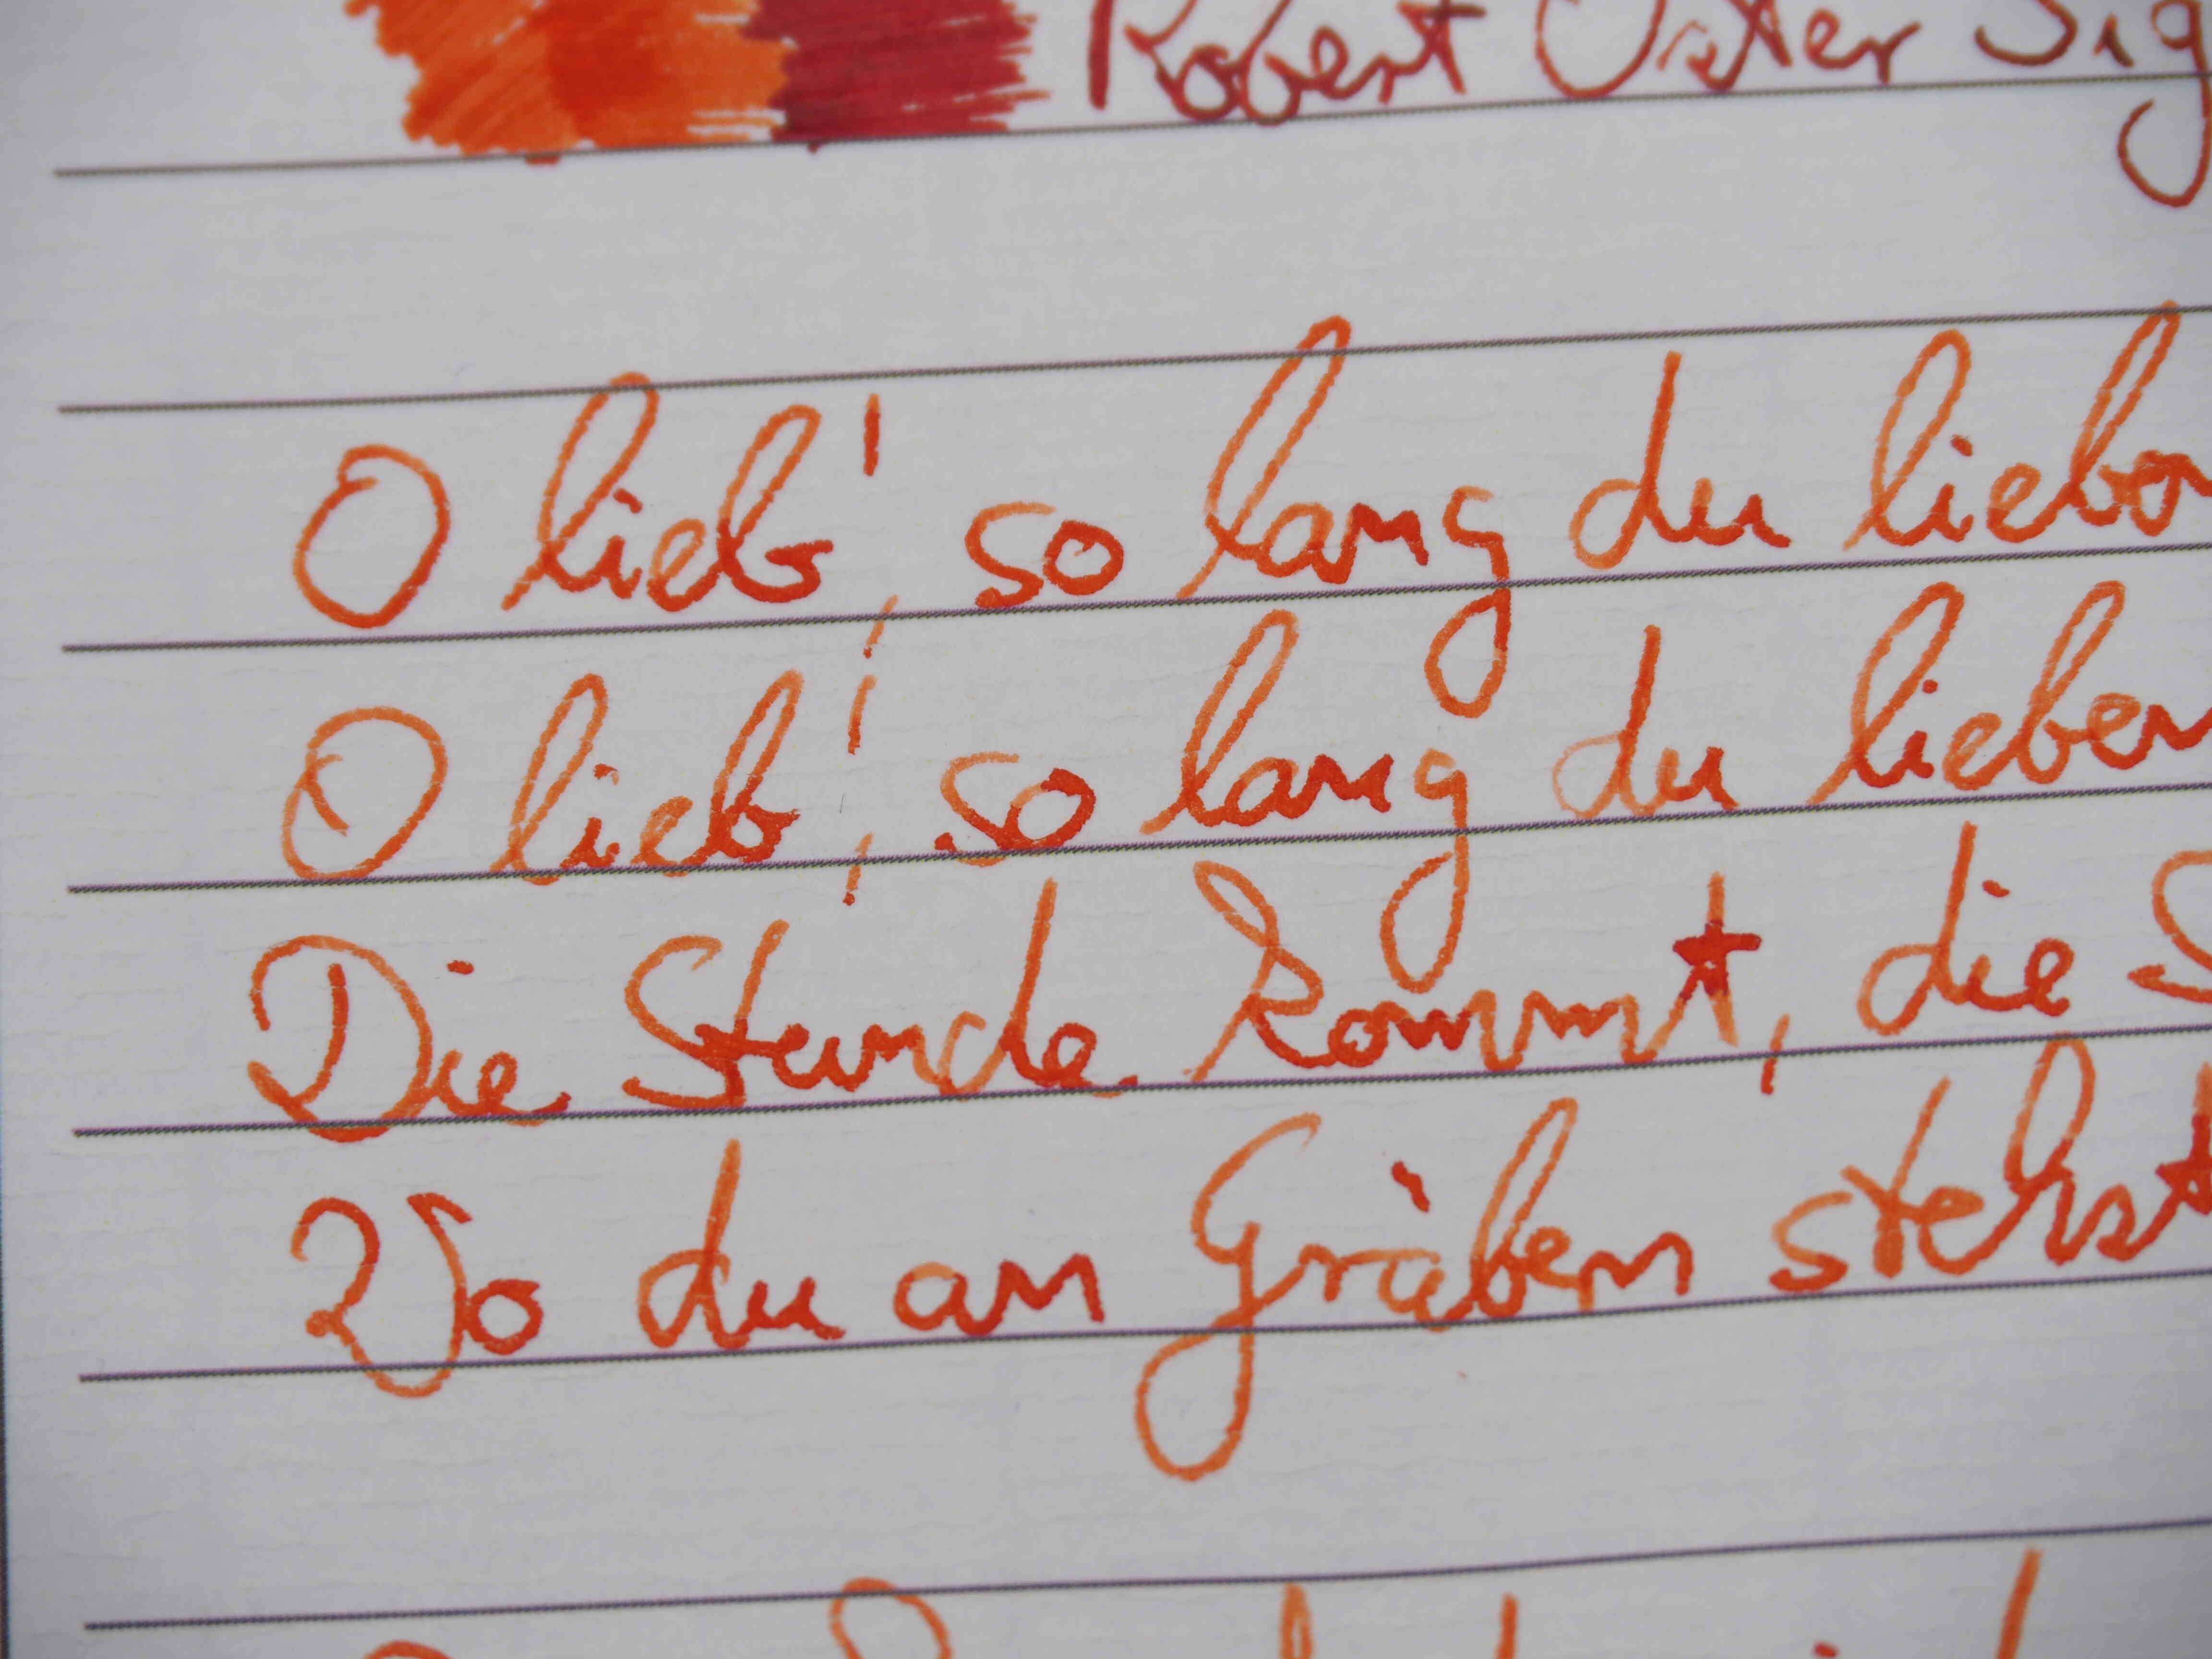 Robert Oster Sig
O lieb', so lang du lieb
O lieb', so lang du lieben
Die Stunde kommt, die S
Wo du an Gräbern stehst